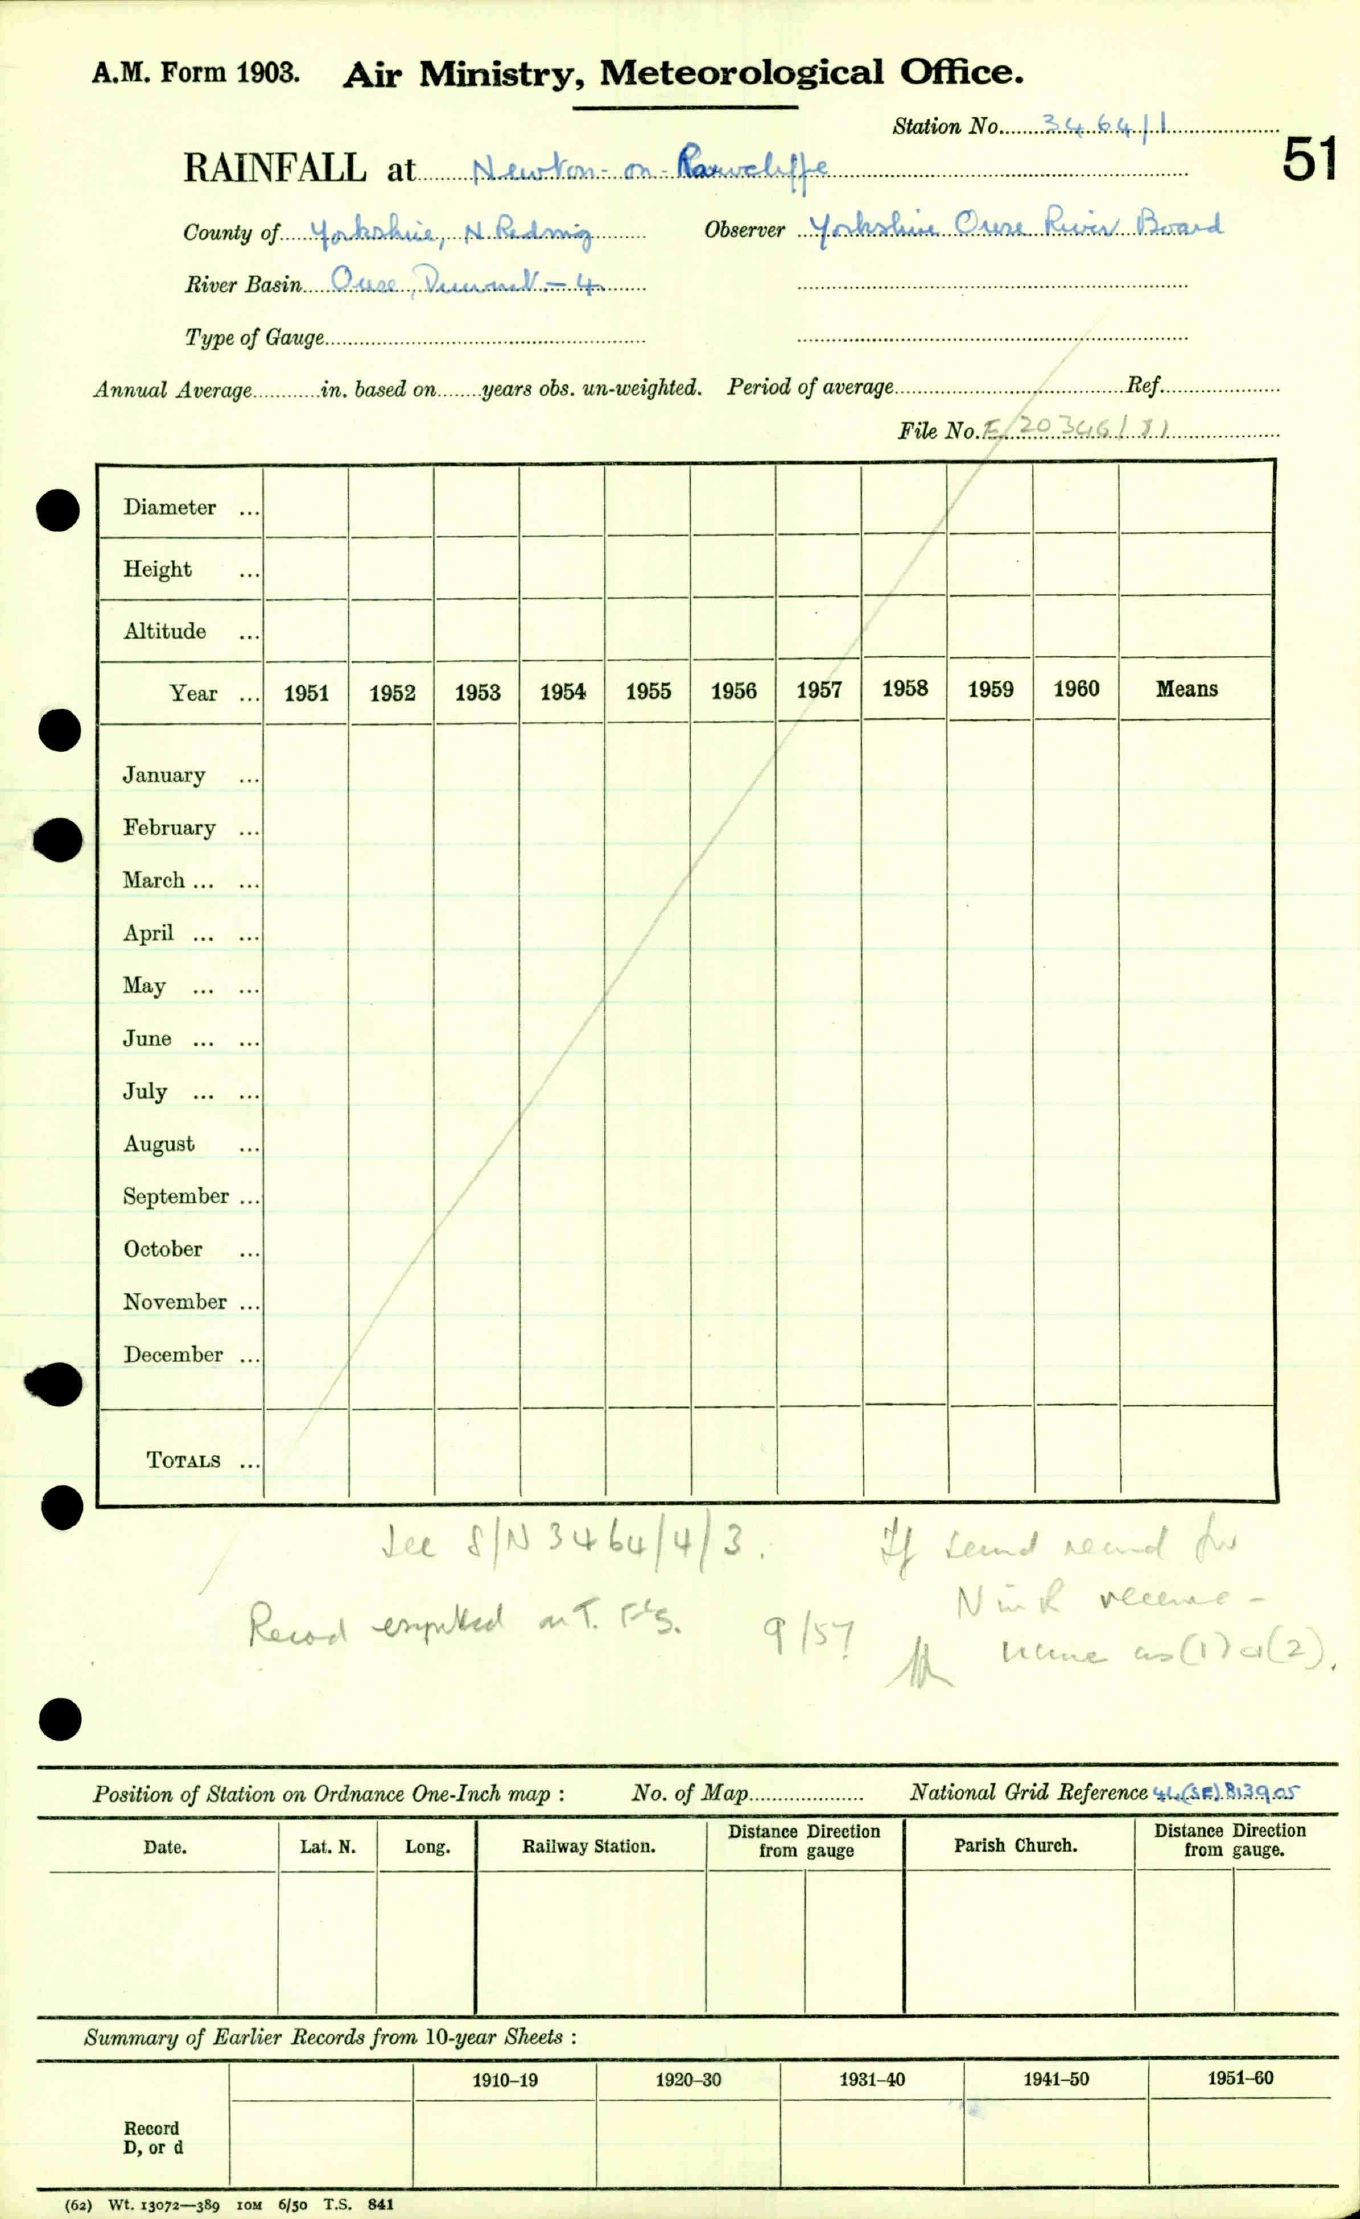 A.M. Form 1903. Air Ministry, Meteorological Office.
Station No. 3464/1
51
RAINFALL at Newton-on-Rawcliffe
County of Yorkshire, N Riding Observer Yorkshire Ouse River Board
River Basin Ouse, Derwent - 4
Type of Gauge
Annual Average in. based on years obs. un-weighted. Period of average Ref.
File No. E 20346/51
Diameter ...
Height ...
Altitude ...
Year ... 1951 1952 1953 1954 1955 1956 1957 1958 1959 1960 Means
January ...
February ...
March ... ...
April ... ...
May ... ...
June ... ...
July ... ...
August ...
September ...
October ...
November ...
December ...
TOTALS ...
See S/N 3464/4/3. If send record for
N in R receive -
Record expected on T. F's. 9/57 name as (1) or (2).
Position of Station on Ordnance One-Inch map : No. of Map National Grid Reference 44(SE)813905
Date. Lat. N. Long. Railway Station. Distance Direction from gauge Parish Church. Distance Direction from gauge.
Summary of Earlier Records from 10-year Sheets :
1910–19 1920–30 1931–40 1941–50 1951–60
Record
D, or d
(62) Wt. 13072—389 10M 6/50 T.S. 841